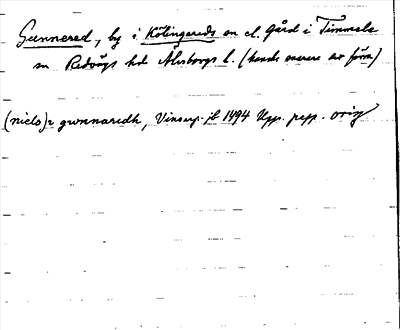 Gunnered, by i Kölingareds sn el. Gård i Timmele
sn Redvägs hd Älvsborgs l. (hands. snarare av förra)
(niclo)r gwnnaredh, Vinsarp. jb 1494 Upp. papp. orig